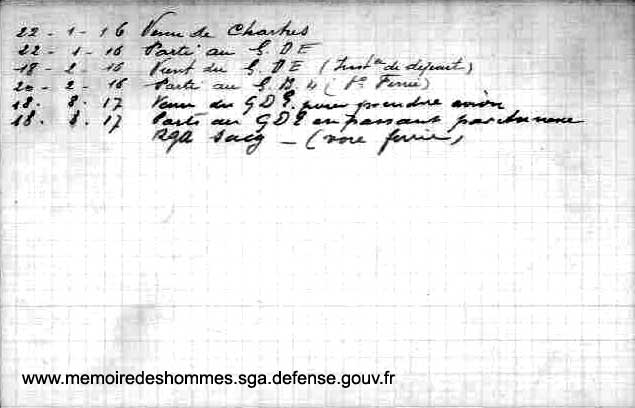 22 - 1 - 16 Venu de Chartres
22 - 1 - 16 Parti au G. D E
18 - 2 - 16 Vient du G. D E (Inston de départ)
20 - 2 - 16 Parti au G. B. 4 (
18. 8. 17 Venu du G D E pour prendre avion
18. 8. 17 Parti au G D E en passant par Annexe
RGA Sacy - (voie ferrée)
www.memoiredeshommes.sga.defense.gouv.fr